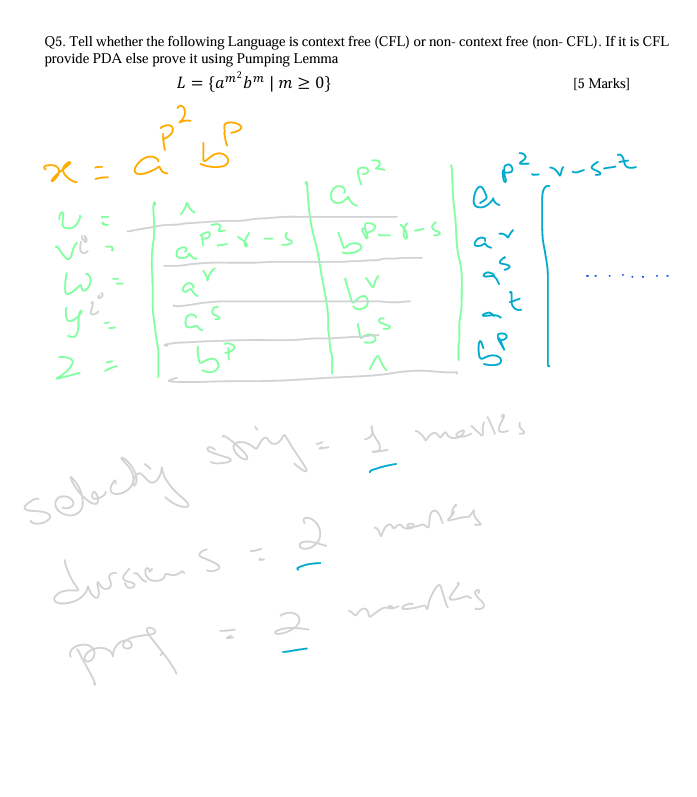 Q5. Tell whether the following Language is context free (CFL) or non- context free (non- CFL). If it is CFL
provide PDA else prove it using Pumping Lemma
L = {a^{m^2} b^m | m ≥ 0} [5 Marks]
x = a^{p^2} b^p
u = ^ a^{p^2} a^{p^2-r-s-t}
v^i = a^{p^2-r-s} b^{p-r-s} a^r
w = a^r b^r a^s
y^i = a^s b^s a^t ........
z = b^p ^ b^p
selectig strig = 1 marks
divsions = 2 marks
prof = 2 marks